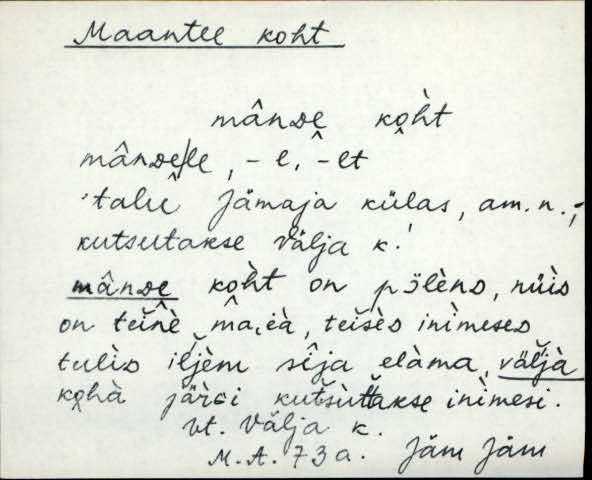 Maantee koht
mânᴅe ko̭ht
mânᴅe/le, - e, - et
'talu Jämaja külas, am. n.,
kutsutakse välja k.'
mânᴅe kòht on pɔ̈lènᴅ, nǜiᴅ
on teiǹè mâ.ià, teišèᴅ inìmeseᴅ
tulìᴅ iľjèm sîja elàma, väľjà
ko̭hà järɢi kutšùttakse inìmesi.
vt. Välja k.
M.A. 73a. Jäm Jäm